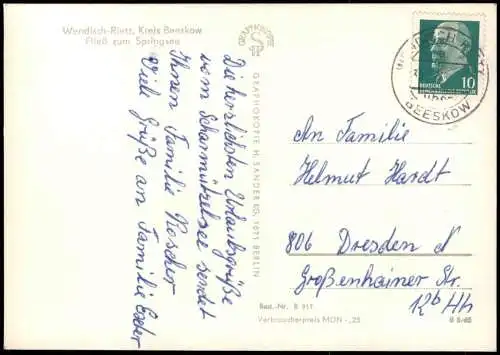 Wendisch-Rietz, Kreis Beeskow
Fließ zum Springsee
Die herzlichsten Urlaubsgrüße
vom Scharmützelsee sendet
Ihnen Familie Noscher
Viele Grüße an Familie
GRAPHOKOPIE
GRAPHOKOPIE H. SANDER KG, 1071 BERLIN
Best.-Nr. B 917
Verbraucherpreis MDN -,25
DEUTSCHE
10
BEESKOW
An Familie
Helmut Hardt
806 Dresden N
Großenhainer Str.
12b Hh